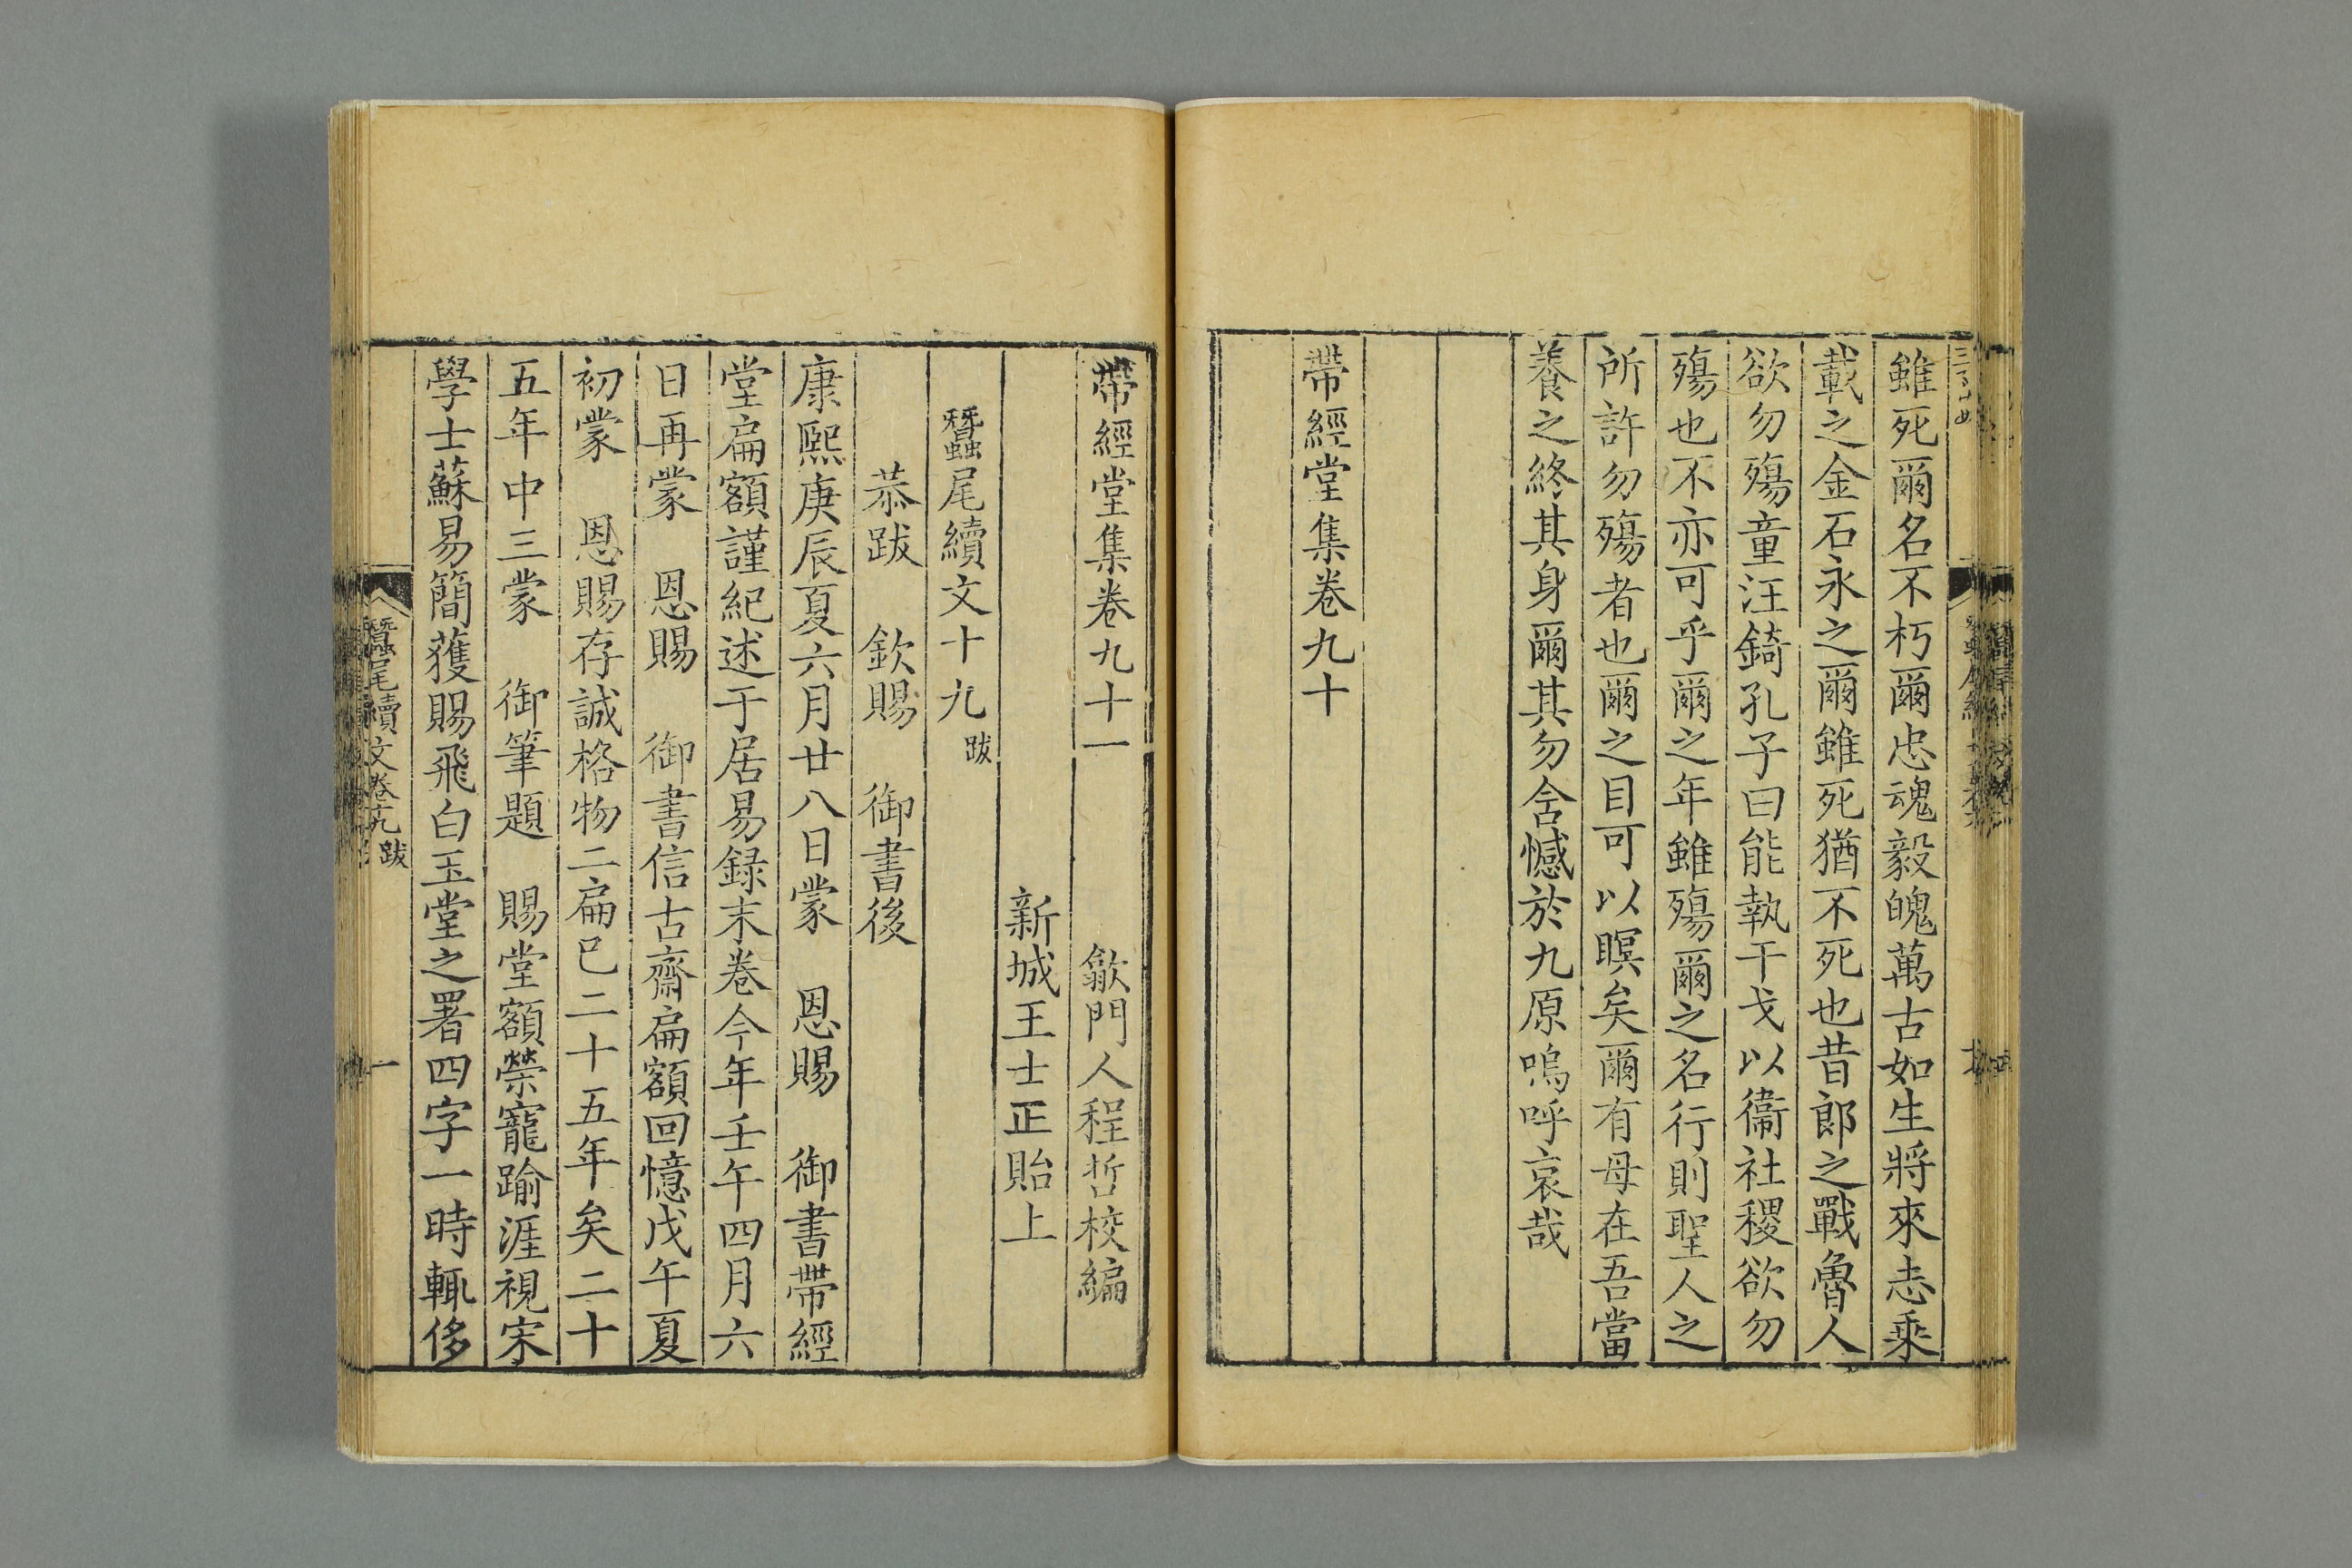 雖死爾名不朽爾忠魂毅魄萬古如生將來志乘
載之金石永之爾雖死猶不死也昔郎之戰魯人
欲勿殤童汪錡孔子曰能執干戈以衞社稷欲勿
殤也不亦可乎爾之年雖殤爾之名行則聖人之
所許勿殤者也爾之目可以瞑矣爾有母在吾當
養之終其身爾其勿舍憾於九原嗚呼哀哉
帶經堂集卷九十
帶經堂集卷九十一 歙門人程哲校編
新城王士正貽上
蠶尾續文十九 跋
恭跋 欽賜 御書後
康熙庚辰夏六月廿八日蒙 恩賜 御書帶經
堂扁額謹紀述于居易録末卷今年壬午四月六
日再蒙 恩賜 御書信古齋扁額回憶戊午夏
初蒙 恩賜存誠格物二扁巳二十五年矣二十
五年中三蒙 御筆題 賜堂額榮寵踰涯視宋
學士蘇易簡獲賜飛白玉堂之署四字一時輒侈
蠶尾續文卷十九 跋 一